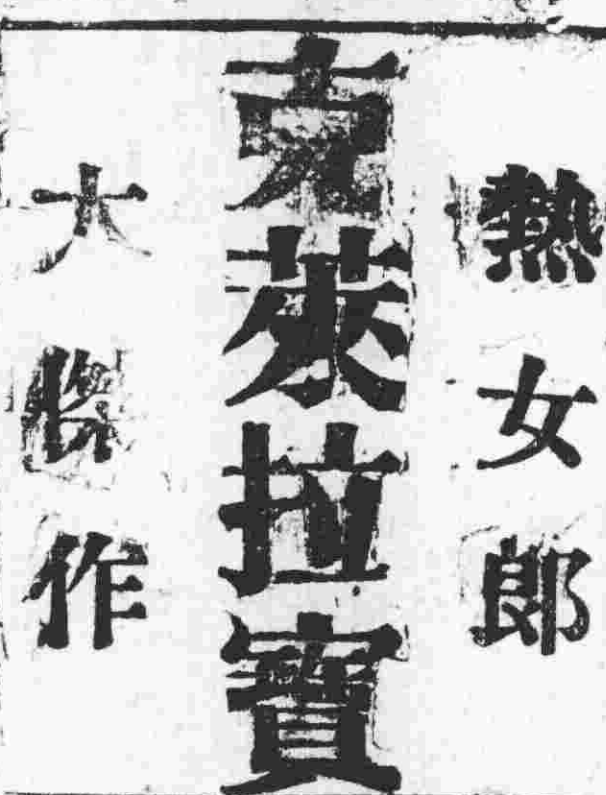 熱女郎
克萊拉寶
大傑作